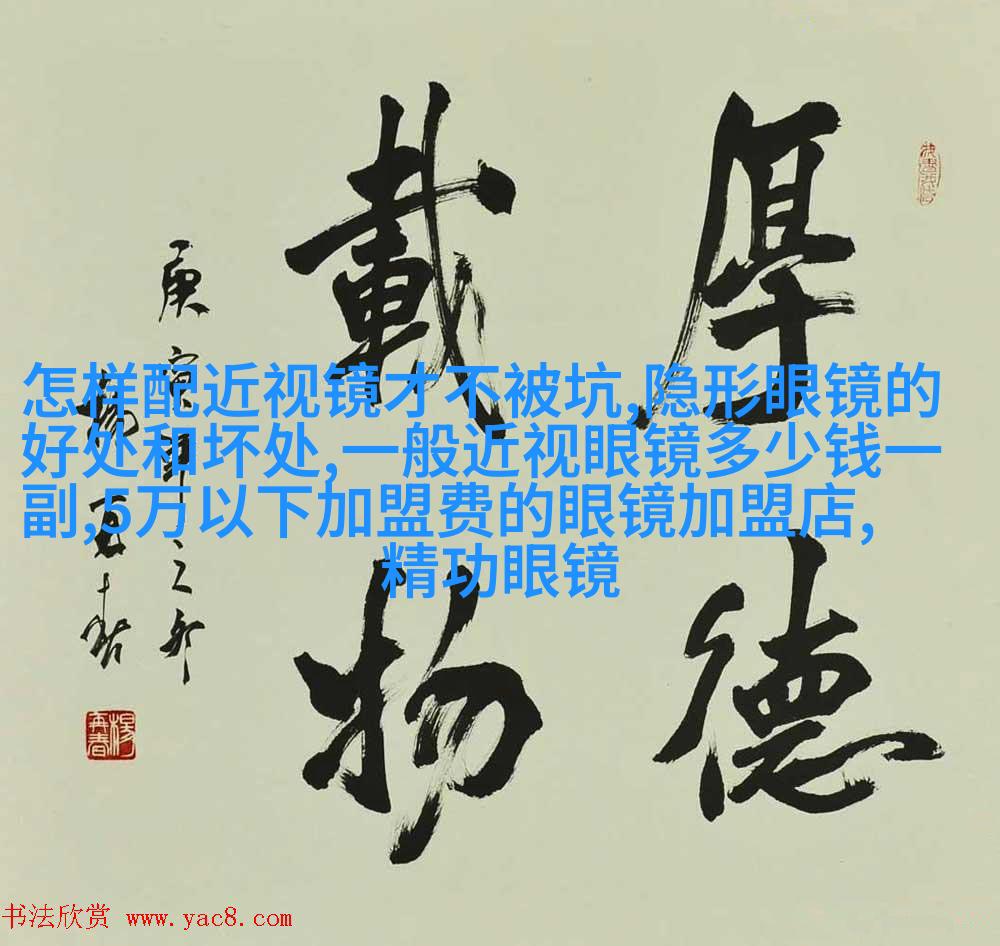 厚德
載物
庚寅年之卯
楊再春
楊再春
怎样配近视镜才不被坑,隐形眼镜的
好处和坏处,一般近视眼镜多少钱一
副,5万以下加盟费的眼镜加盟店,
精功眼镜
书法欣赏 www.yac8.com